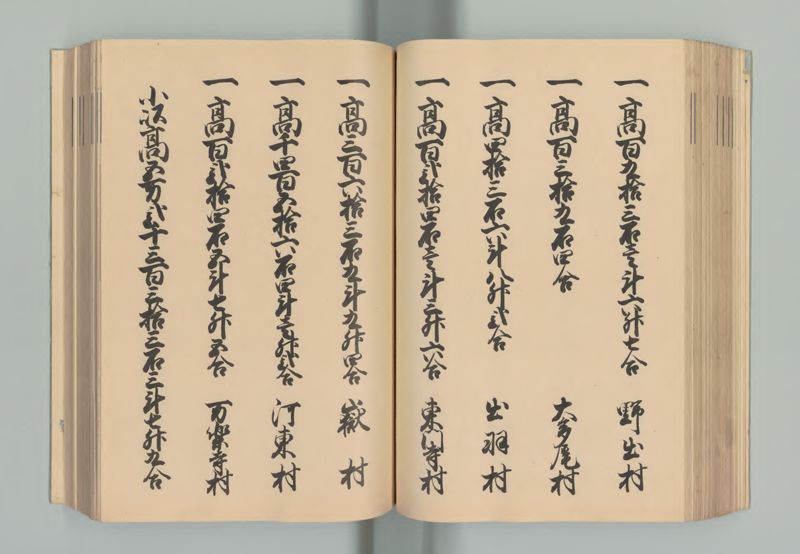 一高百九拾三石壱斗六升七合 野出村
一高百三拾九石四合 大多尾村
一高四拾三石六斗八升弐合 出羽村
一高百弐拾四石壱斗三升六合 東門寺村
一高三百六拾三石九斗九升四合 嶽村
一高千四百五拾六石四斗壱升弐合 河東村
一高百弐拾四石五斗七升五合 万楽寺村
小以高五万弐千三百三拾三石三斗七升九合